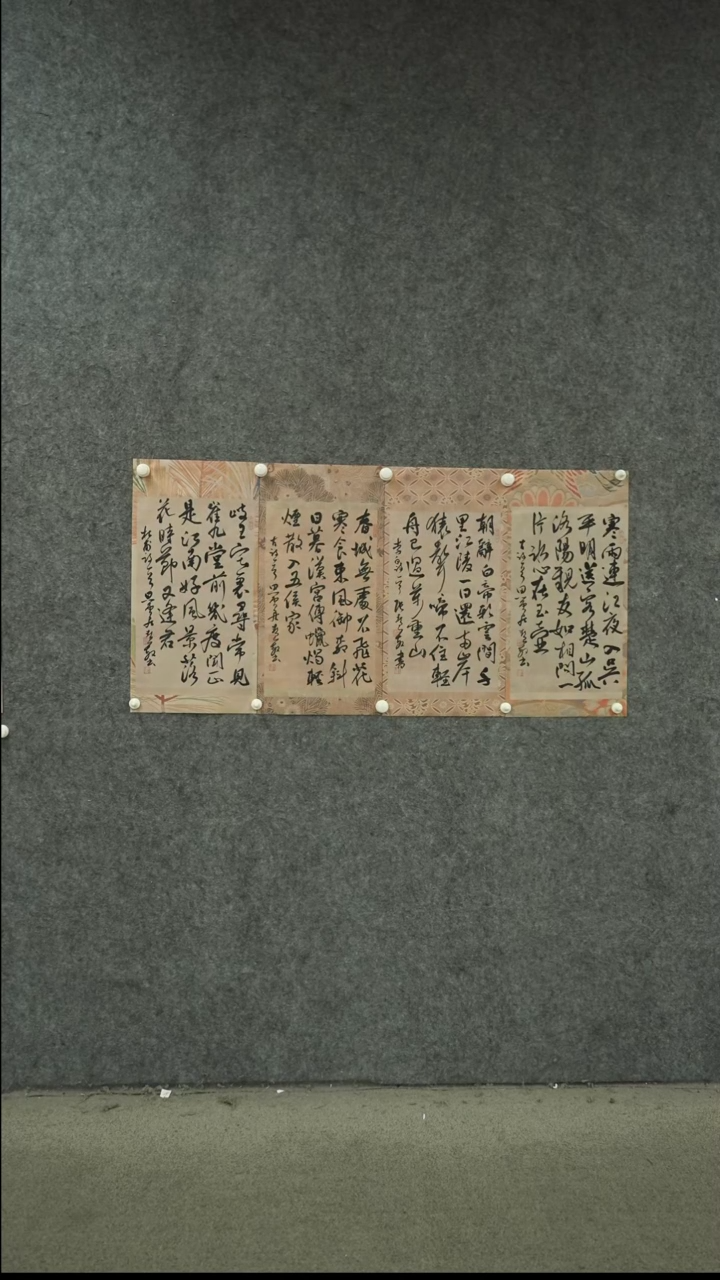 寒雨連江夜入吳
平明送客楚山孤
洛陽親友如相問一
片冰心在玉壺
朝辭白帝彩雲間千
里江陵一日還兩岸
猿聲啼不住輕
舟已過萬重山
春城無處不飛花
寒食東風御柳斜
日暮漢宮傳蠟燭輕
煙散入五侯家
岐王宅裏尋常見
崔九堂前幾度聞正
是江南好風景落
花時節又逢君